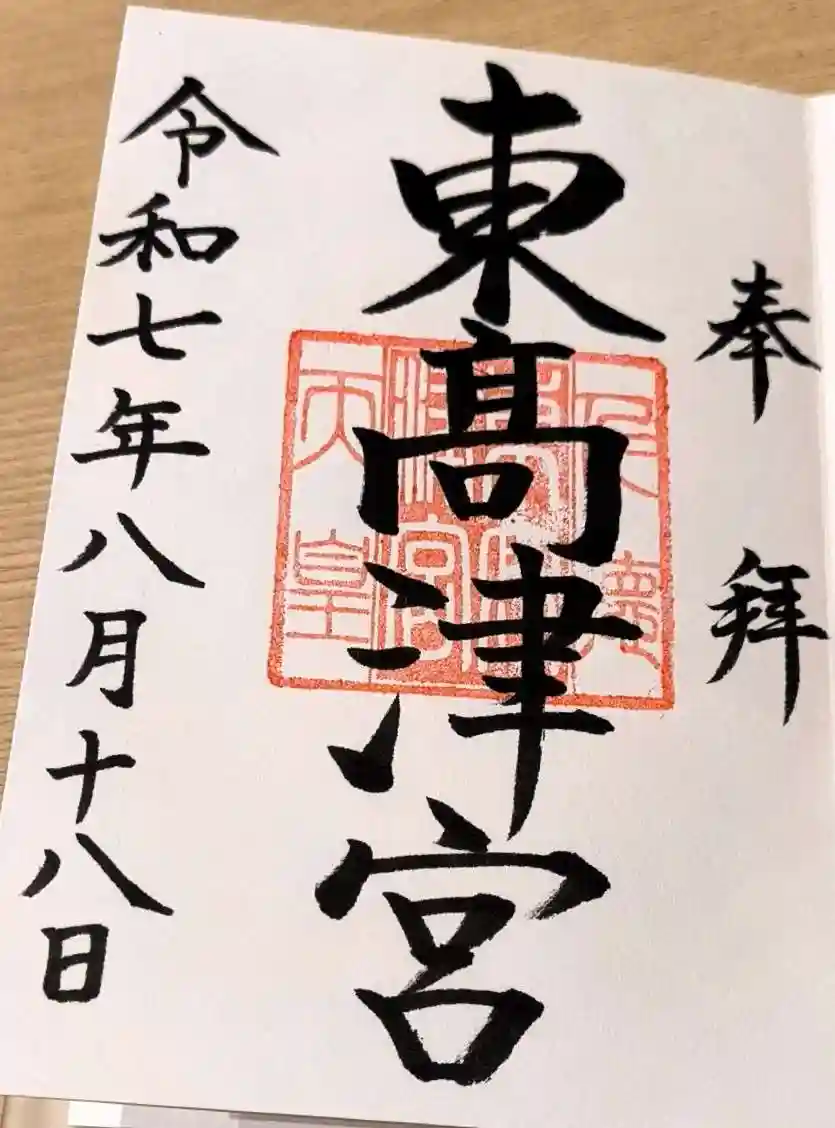 奉拝
東髙津宮
仁徳
髙津
津宮
天皇
令和七年八月十八日